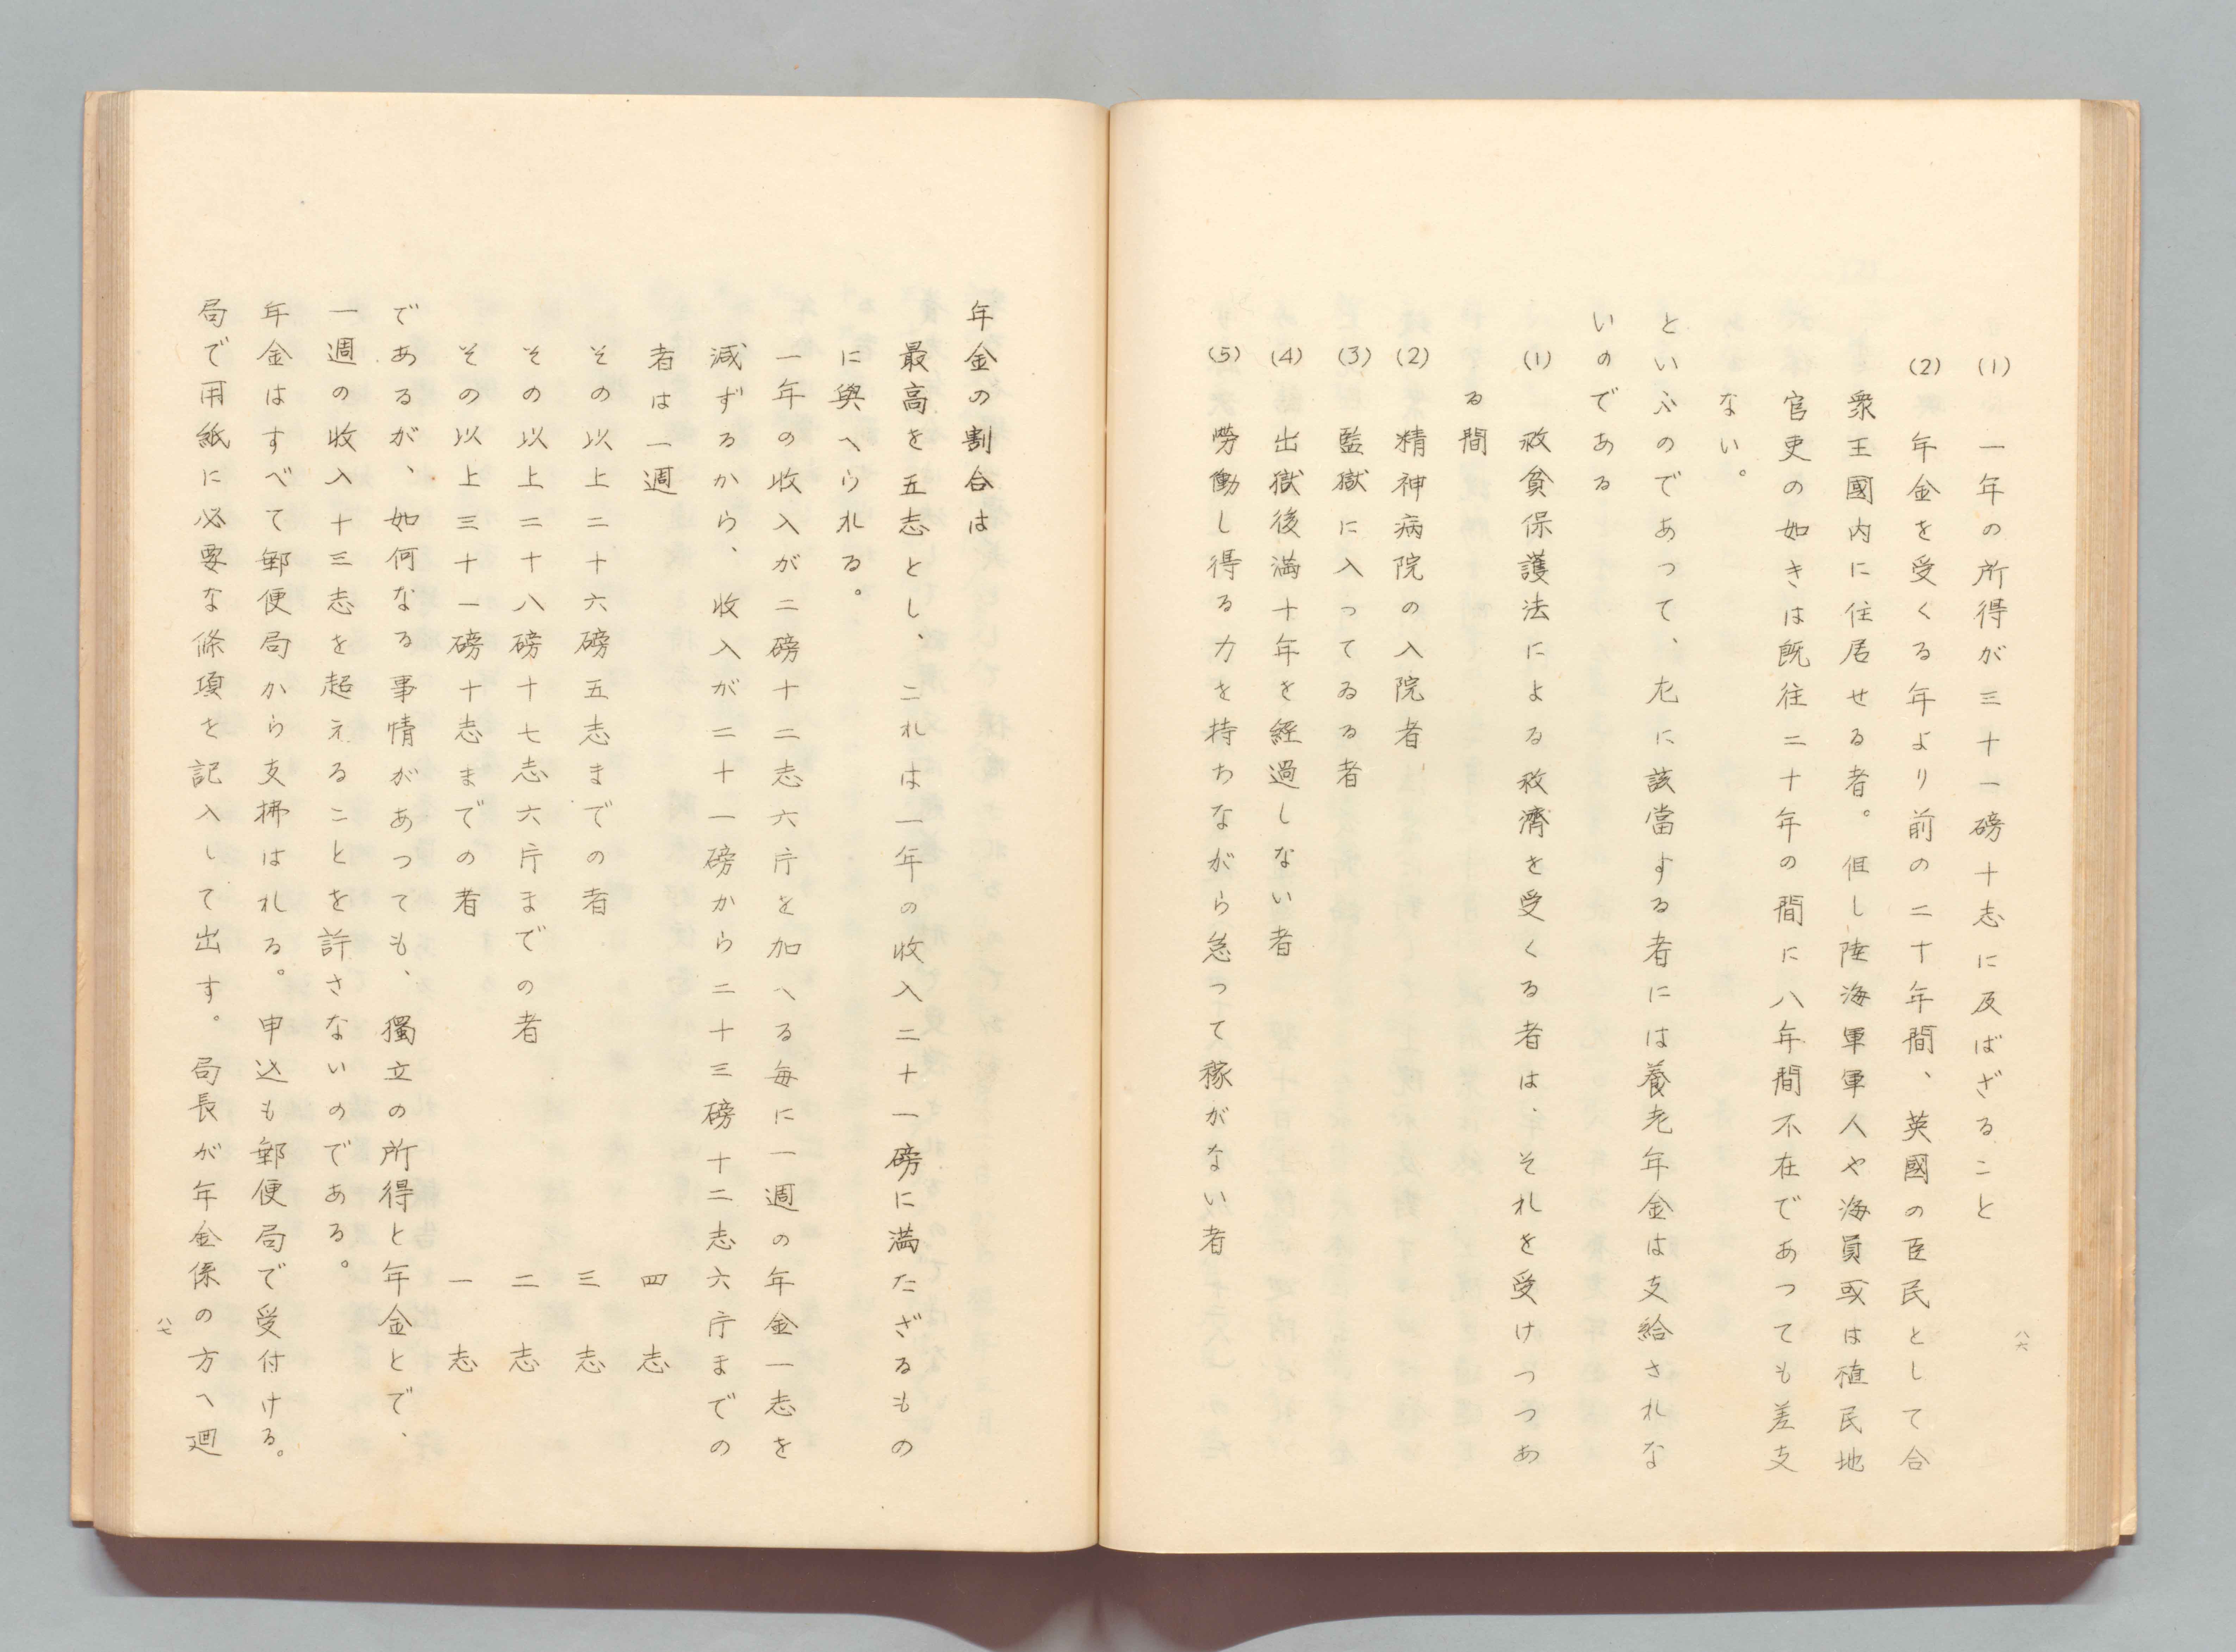 (1) 一年の所得が三十一磅十志に及ばざること
(2) 年金を受くる年より前の二十年間、英國の臣民として合
衆王國内に住居せる者。但し陸海軍軍人や海員或は植民地
官吏の如きは既往二十年の間に八年間不在であつても差支
ない。
といふのであって、左に該當する者には養老年金は支給されな
いのである
(1) 救貧保護法による救濟を受くる者は、それを受けつつあ
る間
(2) 精神病院の入院者
(3) 監獄に入ってゐる者
(4) 出獄後満十年を経過しない者
(5) 勞働し得る力を持ちながら怠って稼がない者
八六
年金の割合は
最高を五志とし、二れは一年の收入二十一磅に満たざるもの
に與へられる。
一年の收入が二磅十二志六片を加へる毎に一週の年金一志を
減ずるから、收入が二十一磅から二十三磅十二志六片までの
者は一週 四志
その以上二十六磅五志までの者 三志
その以上二十八磅十七志六片までの者 二志
その以上三十一磅十志までの者 一志
であるが、如何なる事情があっても、獨立の所得と年金とで、
一週の收入十三志を超えることを許さないのである。
年金はすべて郵便局から支拂はれる。申込も郵便局で受付ける。
局で用紙に必要な條項を記入して出す。局長が年金係の方へ廻
八七